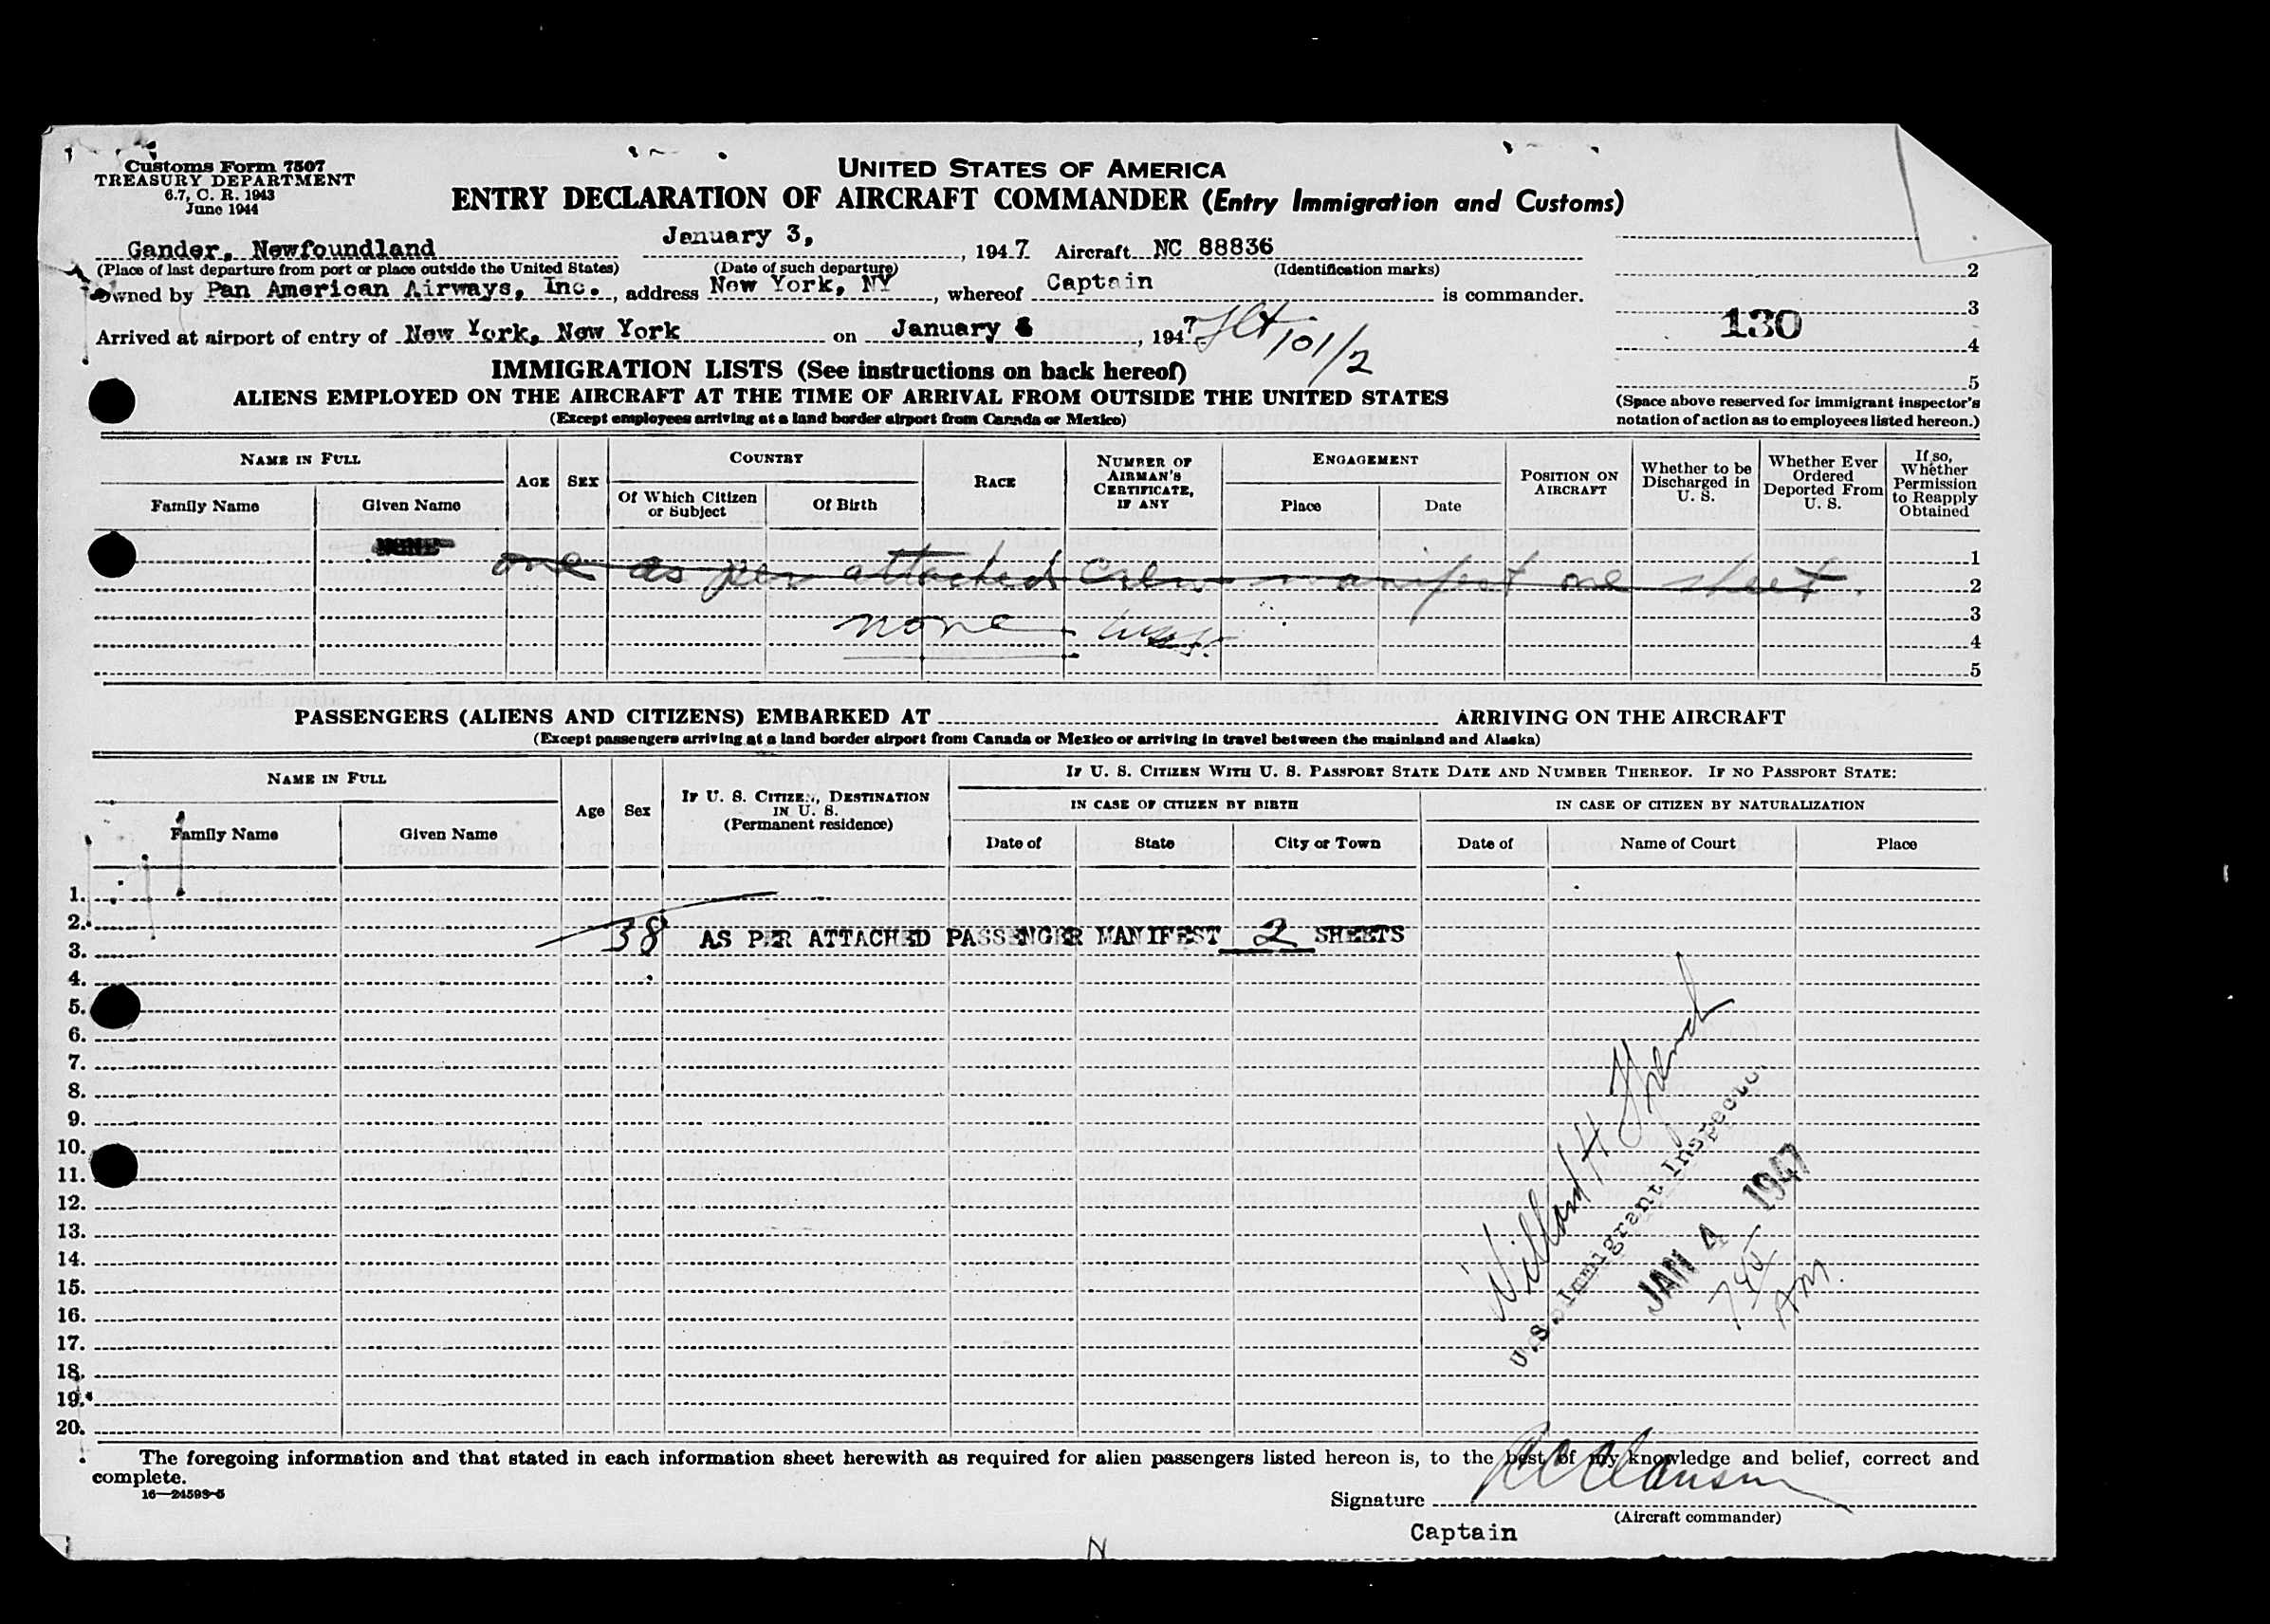 Customs Form 7507
TREASURY DEPARTMENT
6.7, C. R. 1943
June 1944
UNITED STATES OF AMERICA
ENTRY DECLARATION OF AIRCRAFT COMMANDER (Entry Immigration and Customs)
Gander, Newfoundland January 3, , 1947 Aircraft NC 88836
(Place of last departure from port or place outside the United States) (Date of such departure) (Identification marks)
Owned by Pan American Airways, Inc. , address New York, NY , whereof Captain is commander.
Arrived at airport of entry of New York, New York on January , 1947 Flt 101/2
2
3
130
4
5
(Space above reserved for immigrant inspector's
notation of action as to employees listed hereon.)
IMMIGRATION LISTS (See instructions on back hereof)
ALIENS EMPLOYED ON THE AIRCRAFT AT THE TIME OF ARRIVAL FROM OUTSIDE THE UNITED STATES
(Except employees arriving at a land border airport from Canada or Mexico)
NAME IN FULL
Family Name
Given Name
AGE
SEX
COUNTRY
Of Which Citizen or Subject
Of Birth
RACE
NUMBER OF AIRMAN'S CERTIFICATE, IF ANY
ENGAGEMENT
Place
Date
POSITION ON AIRCRAFT
Whether to be Discharged in U. S.
Whether Ever Ordered Deported From U. S.
If so, Whether Permission to Reapply Obtained
NONE
1
one as per attached crew manifest one sheet
2
3
none
4
5
PASSENGERS (ALIENS AND CITIZENS) EMBARKED AT ARRIVING ON THE AIRCRAFT
(Except passengers arriving at a land border airport from Canada or Mexico or arriving in travel between the mainland and Alaska)
NAME IN FULL
Family Name
Given Name
Age
Sex
IF U. S. CITIZEN, DESTINATION IN U. S.
(Permanent residence)
IF U. S. CITIZEN WITH U. S. PASSPORT STATE DATE AND NUMBER THEREOF. IF NO PASSPORT STATE:
IN CASE OF CITIZEN BY BIRTH
Date of
State
City or Town
IN CASE OF CITIZEN BY NATURALIZATION
Date of
Name of Court
Place
1.
2.
38 AS PER ATTACHED PASSENGER MANIFEST 2 SHEETS
3.
4.
5.
6.
7.
8.
9.
10.
11.
12.
13.
14.
15.
16.
17.
18.
19.
20.
U.S. Immigrant Inspector
JAN 4 1947
740 AM.
The foregoing information and that stated in each information sheet herewith as required for alien passengers listed hereon is, to the best of my knowledge and belief, correct and
complete.
16—24593-5
Signature
(Aircraft commander)
Captain
N